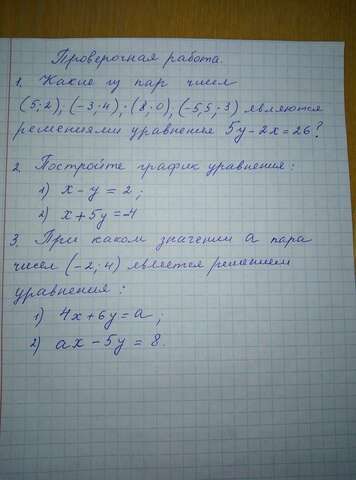 Проверочная работа.
1. Какие из пар чисел
(5;2), (-3;4); (8;0), (-5,5;3) являются
решениями уравнения 5y-2x=26?
2. Постройте график уравнения:
1) x-y=2;
2) x+5y=-4
3. При каком значении a пара
чисел (-2;4) является решением
уравнения:
1) 4x+6y=a;
2) ax-5y=8.